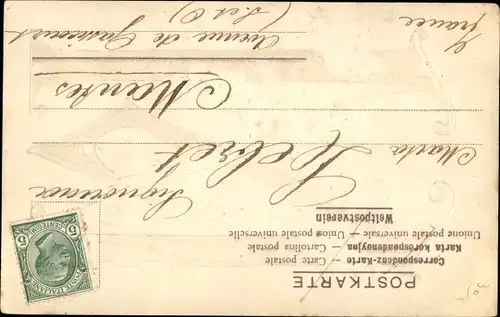 POSTKARTE
Correspondenz-Karte — Carte postale
Karta korespondencyjna — Cartolina postale
Unione postale universale — Union postale universelle
Weltpostverein
Signorina
Maria Lebret
Mantes
Avenue de
(S. et O)
France
POSTE ITALIANE
5 CENTESIMI 5